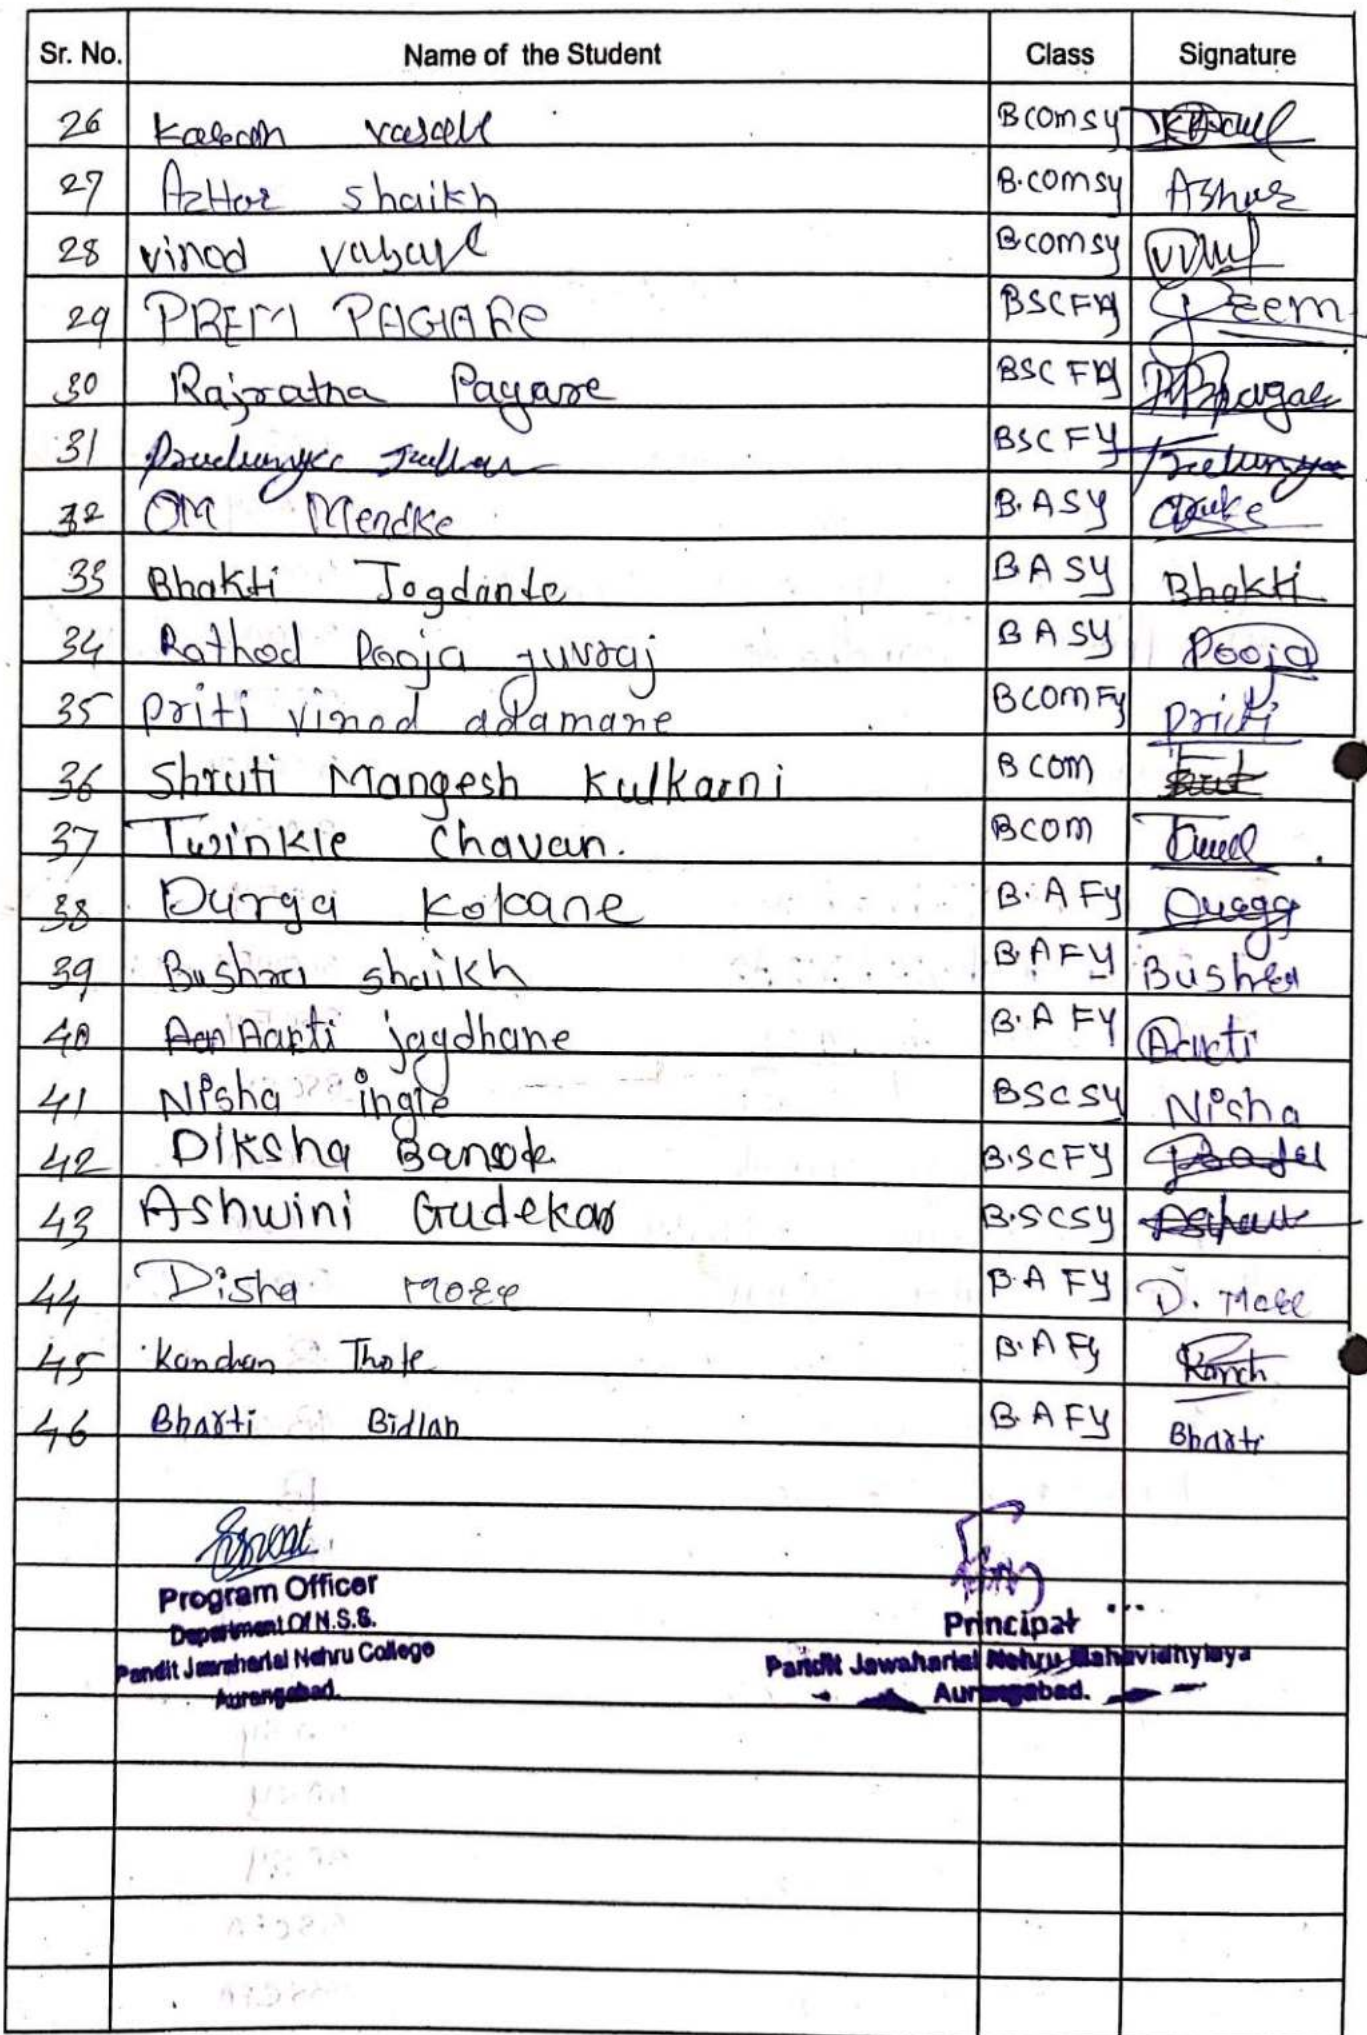 Sr. No. Name of the Student Class Signature
26 Bcomsy
27 AzHar shaikh B.comsy Azhar
28 vinod Bcomsy
29 PREM PAGARE BSCFY Preem
30 Rajratna Pagare BSC FY
31 BSC FY
32 OM Mendke B.A SY
33 Bhakti Jogdante B A SY Bhakti
34 Rathod Pooja yuvraj B A SY Pooja
35 priti vinod adamane BCOM Fy priti
36 Shruti Mangesh Kulkarni B COM
37 Twinkle Chavan. BCOM
38 Durga Kolcane B.A FY Durga
39 Bushra shaikh B.A FY Bushra
40 Aarti jagdhane B.A FY Aarti
41 Nisha ingle BSCSY Nisha
42 Diksha B.SCFY
43 Ashwini Gudekar B.SCSY
44 Disha More B.A FY D. More
45 Kanchan Thote B.A Fy Kanch
46 Bharti Bidlan B.A FY Bharti
Program Officer
Department Of N.S.S.
Pandit Jawaharlal Nehru College
Aurangabad.
Principal
Pandit Jawaharlal Nehru Mahavidhylaya
Aurangabad.